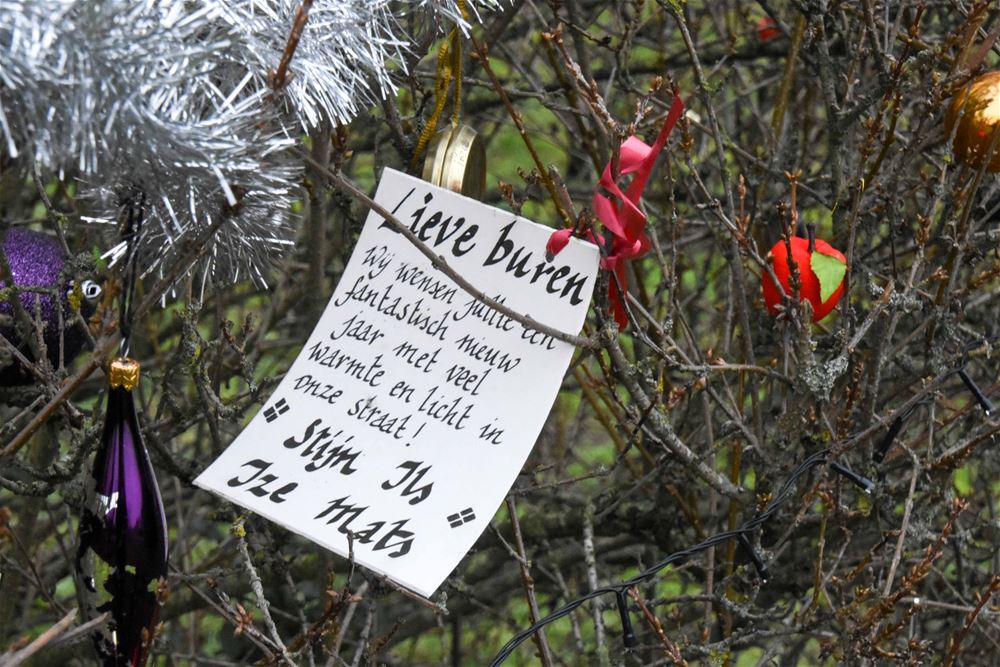 Lieve buren
Wij wensen jullie een
fantastisch nieuw
jaar met veel
warmte en licht in
onze straat!
Stijn Ils
Ize Mats